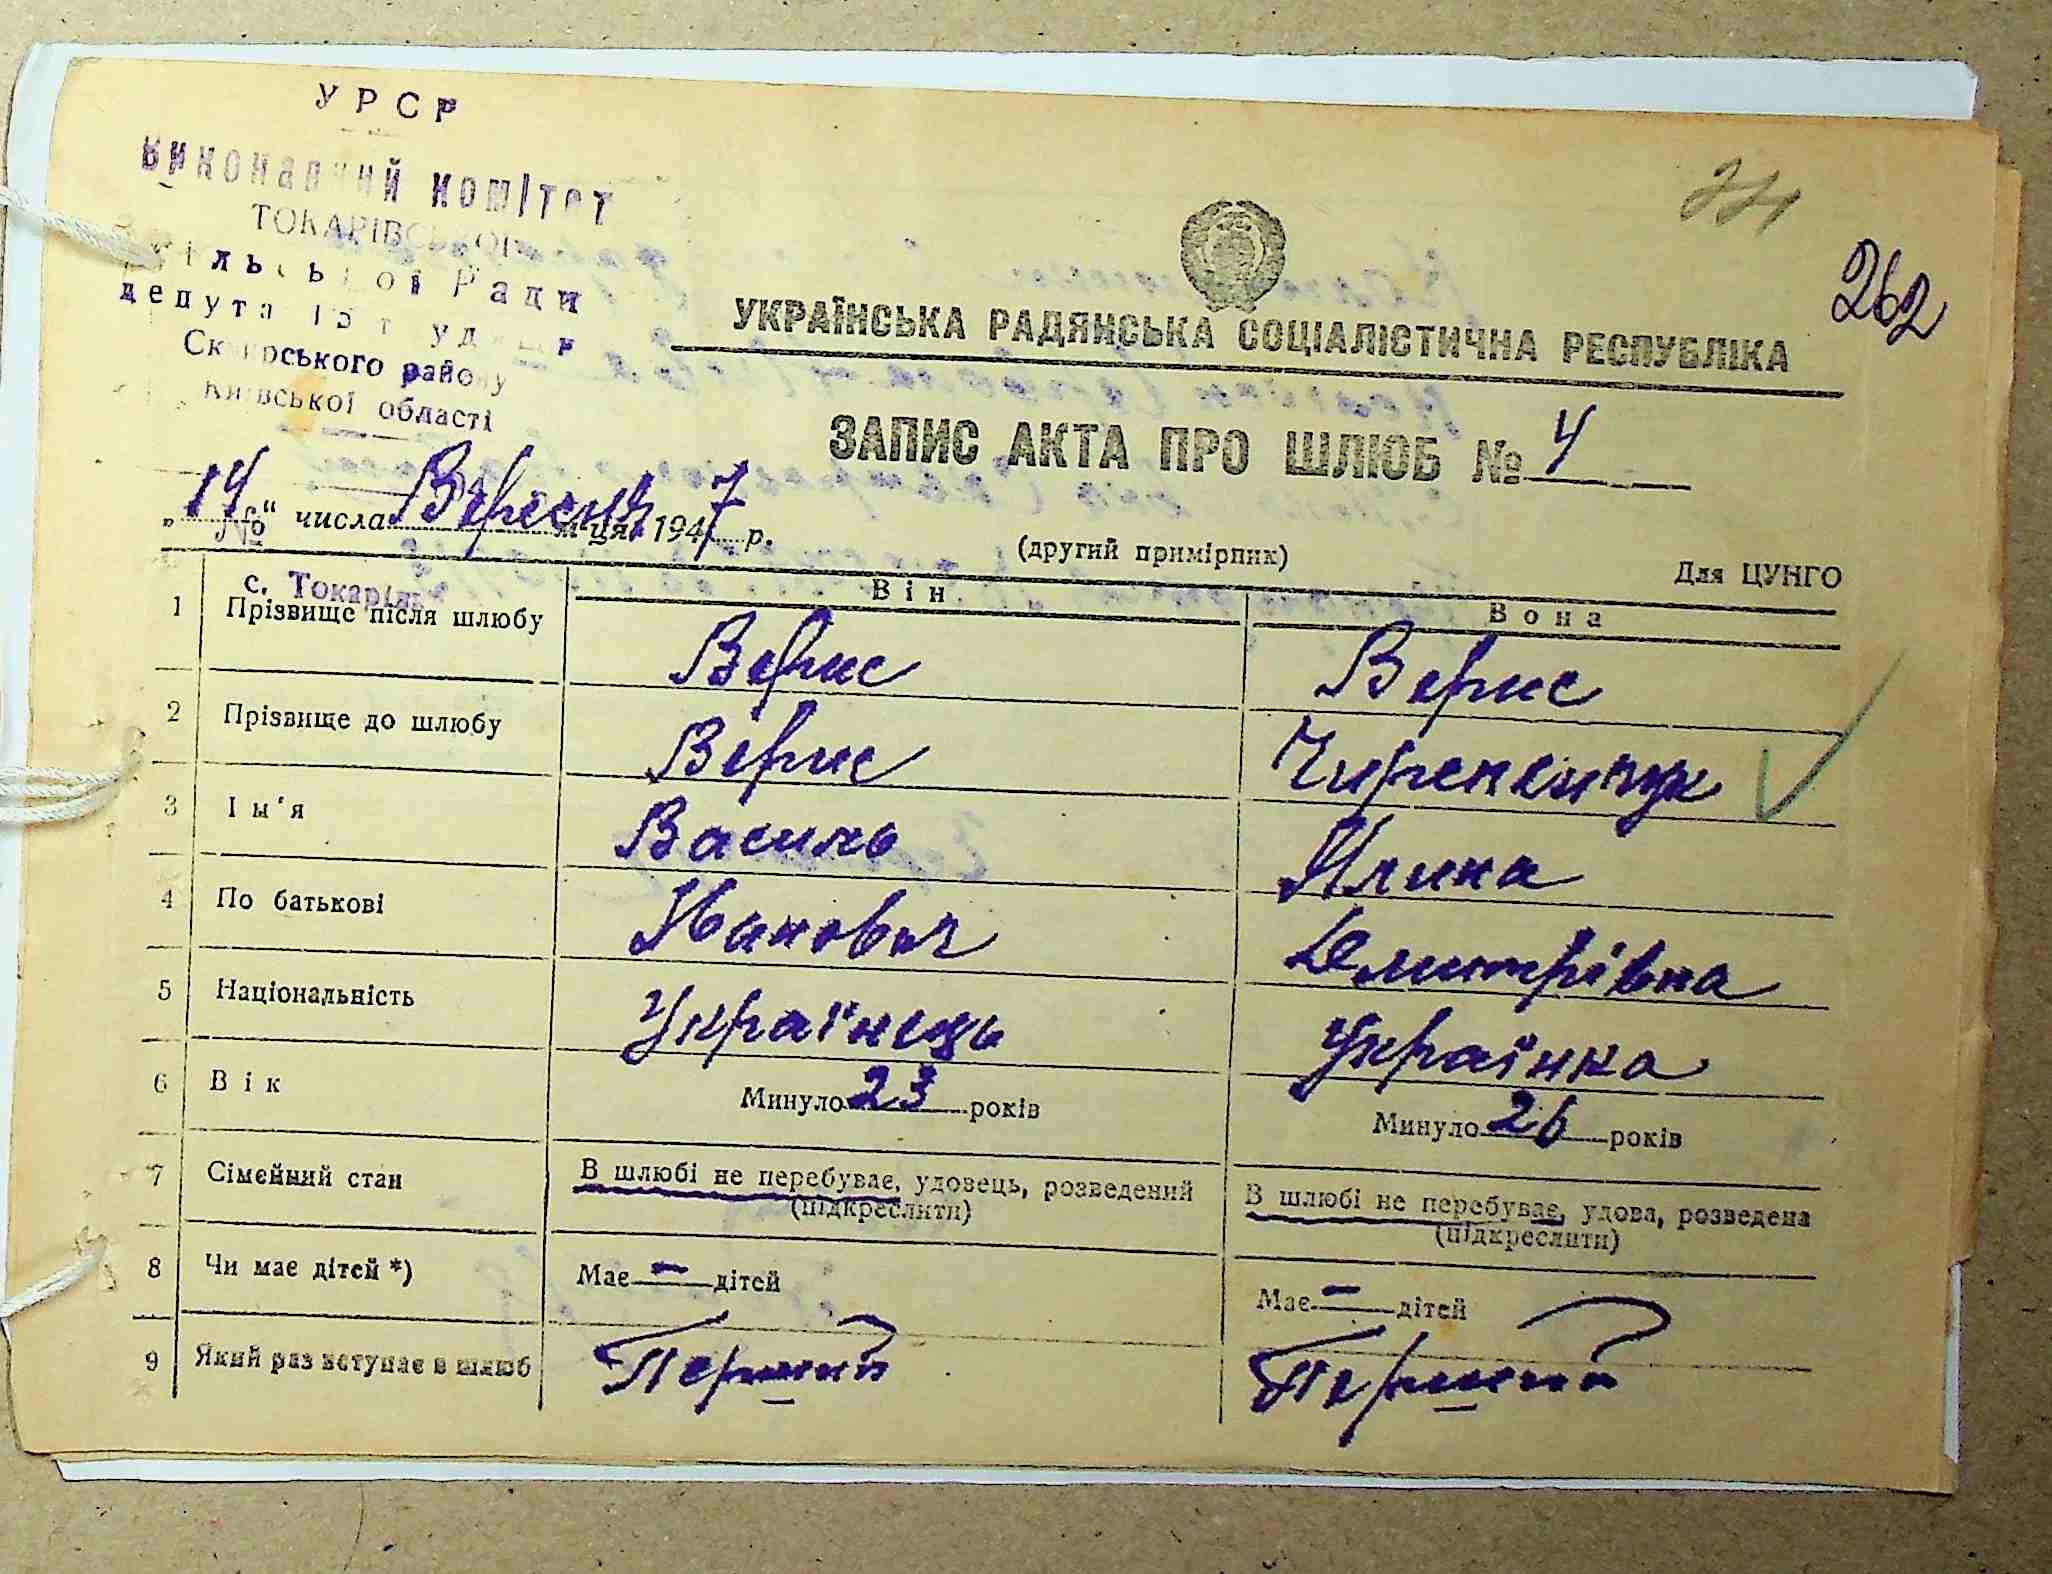 УРСР
Виконавчий комітет
ТОКАРІВСЬКОЇ
сільської Ради
депутатів трудящ
Сквирського району
Київської області
262
УКРАЇНСЬКА РАДЯНСЬКА СОЦІАЛІСТИЧНА РЕСПУБЛІКА
ЗАПИС АКТА ПРО ШЛЮБ № 4
„14“ числа Вересня м-ця 1947 р.
№
(другий примірник)
Для ЦУНГО
с. Токарівка
Він Вона
1 Прізвище після шлюбу Верис Верис
2 Прізвище до шлюбу Верис
3 Ім'я Василь Ялина
4 По батькові Иванович Дмитрівна
5 Національність Українець Українка
6 Вік Минуло 23 років Минуло 26 років
7 Сімейний стан В шлюбі не перебуває, удовець, розведений (підкреслити) В шлюбі не перебуває, удова, розведена (підкреслити)
8 Чи має дітей *) Має – дітей Має – дітей
9 Який раз вступає в шлюб Перший Перший